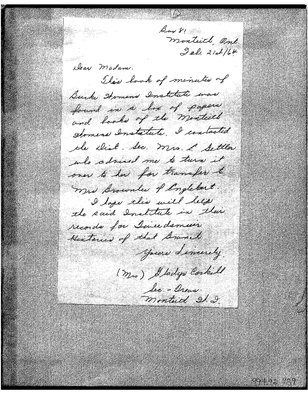 Box 81
Monteith, Ont
Feb. 21st/64
Dear Madam.
This book of minutes of
Burks Womens Institute was
found in a box of papers
and books of the Monteith
Womens Institute. I contacted
the Dist. Sec. Mrs. C Settler
who advised me to turn it
over to her for transfer to
Mrs Brownlee of Englehart.
I hope this will help
the said Institute in their
records for Tweedsmuir
Histories of that Branch
Yours Sincerely
(Mrs) Gladys
Sec - Treas
Monteith W. I.